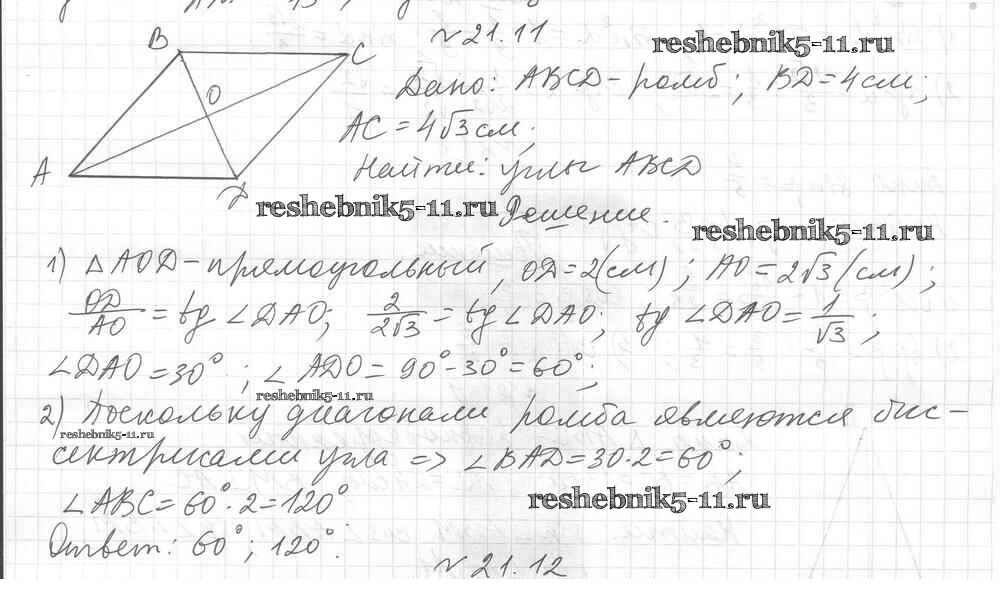 B
C
O
A
D
№ 21.11
reshebnik5-11.ru
Дано: ABCD - ромб; BD = 4 см;
AC = 4√3 см;
Найти: углы ABCD
reshebnik5-11.ru
Решение.
reshebnik5-11.ru
1) △ AOD - прямоугольный, OD = 2 (см); AO = 2√3 (см);
OD/AO = tg ∠DAO; 2/2√3 = tg ∠DAO; tg ∠DAO = 1/√3;
∠DAO = 30°; ∠ADO = 90° - 30° = 60°;
reshebnik5-11.ru
2) Поскольку диагонали ромба являются бис-
reshebnik5-11.ru
сектрисами угла => ∠BAD = 30·2 = 60°;
∠ABC = 60°·2 = 120°
reshebnik5-11.ru
Ответ: 60°; 120°.
№ 21.12